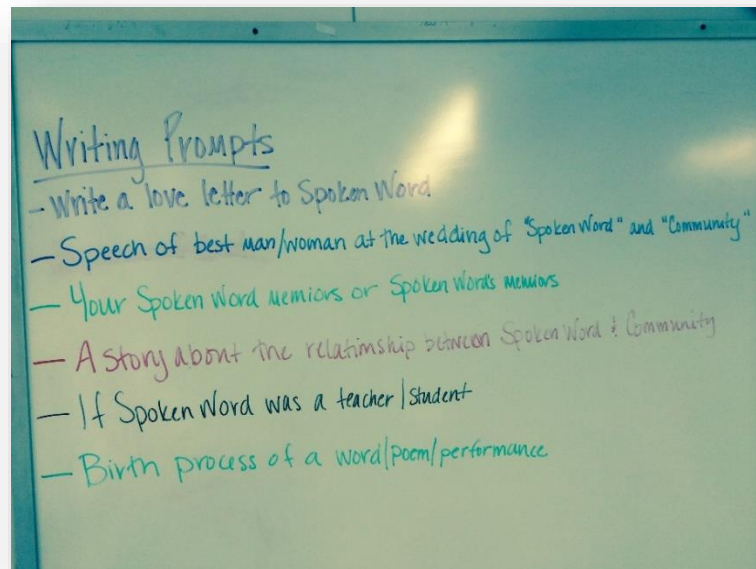 Writing Prompts
- Write a love letter to Spoken Word
- Speech of best man/woman at the wedding of "Spoken Word" and "Community"
- Your Spoken Word memiors or Spoken Word's memiors
- A story about the relationship between Spoken Word & Community
- If Spoken Word was a teacher/student
- Birth process of a word/poem/performance